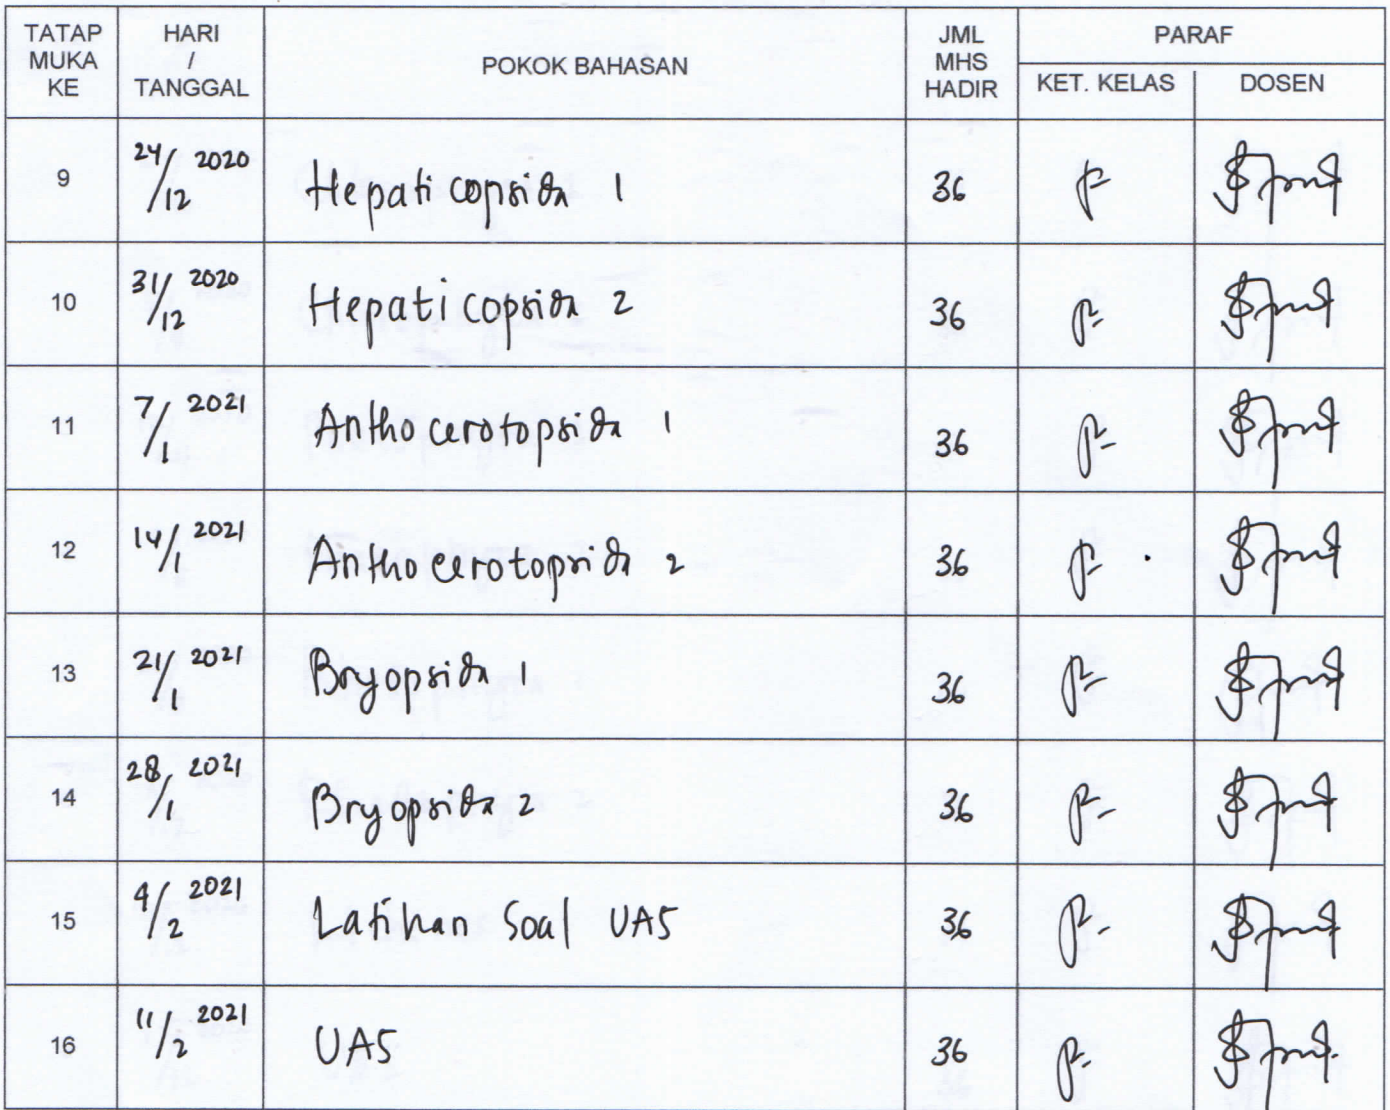 TATAP MUKA KE | HARI / TANGGAL | POKOK BAHASAN | JML MHS HADIR | PARAF
KET. KELAS | DOSEN
9 | 24/12 2020 | Hepaticopsida 1 | 36
10 | 31/12 2020 | Hepaticopsida 2 | 36
11 | 7/1 2021 | Anthocerotopsida 1 | 36
12 | 14/1 2021 | Anthocerotopsida 2 | 36
13 | 21/1 2021 | Bryopsida 1 | 36
14 | 28/1 2021 | Bryopsida 2 | 36
15 | 4/2 2021 | Latihan Soal UAS | 36
16 | 11/2 2021 | UAS | 36